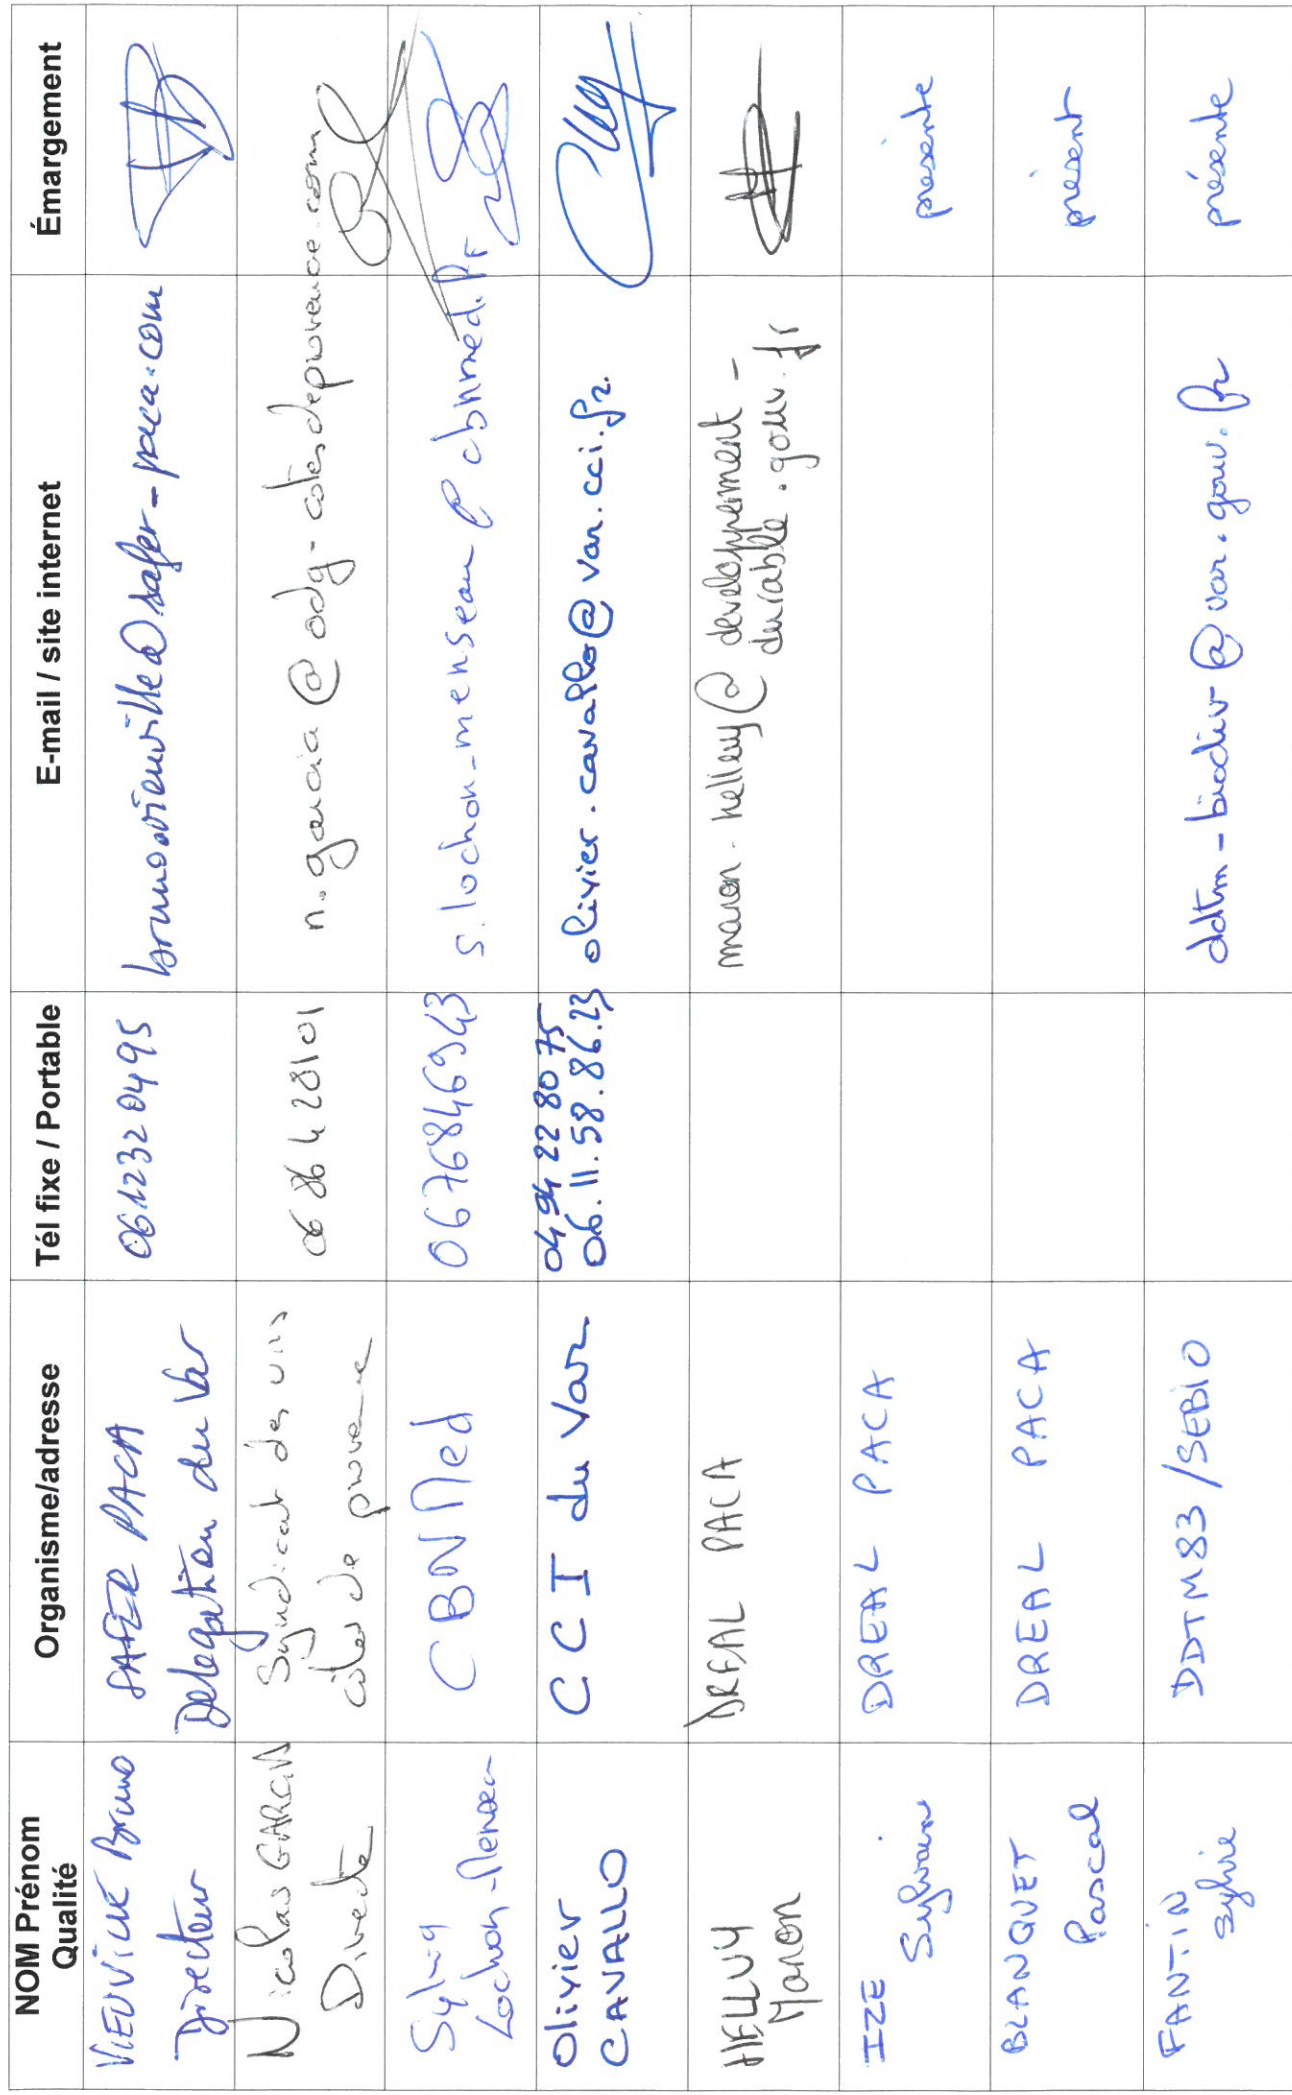 NOM Prénom
Qualité
Organisme/adresse
Tél fixe / Portable
E-mail / site internet
Émargement
VIEUVILLE Bruno
Directeur
SAFER PACA
Delegation du Var
0612320495
brunovieuville@safer-paca.com
Nicolas GARCIA
Directeur
Syndicat des vins
côtes de provence
06 86 42 81 01
n.garcia@odg-cotesdeprovence.com
Sylvia
Lochon-Menseau
CBNMed
0676846943
s.lochon-menseau@cbnmed.fr
Olivier
CAVALLO
CCI du Var
04 94 22 80 75
06.11.58.86.23
olivier.cavallo@var.cci.fr.
HELLUY
Manon
DREAL PACA
manon.helluy@developpement-
durable.gouv.fr
IZE
Sylvain
DREAL PACA
présente
BLANQUET
Pascal
DREAL PACA
présent
FANTIN
Sylvie
DDTM83/SEBIO
ddtm-biodiv@var.gouv.fr
présente